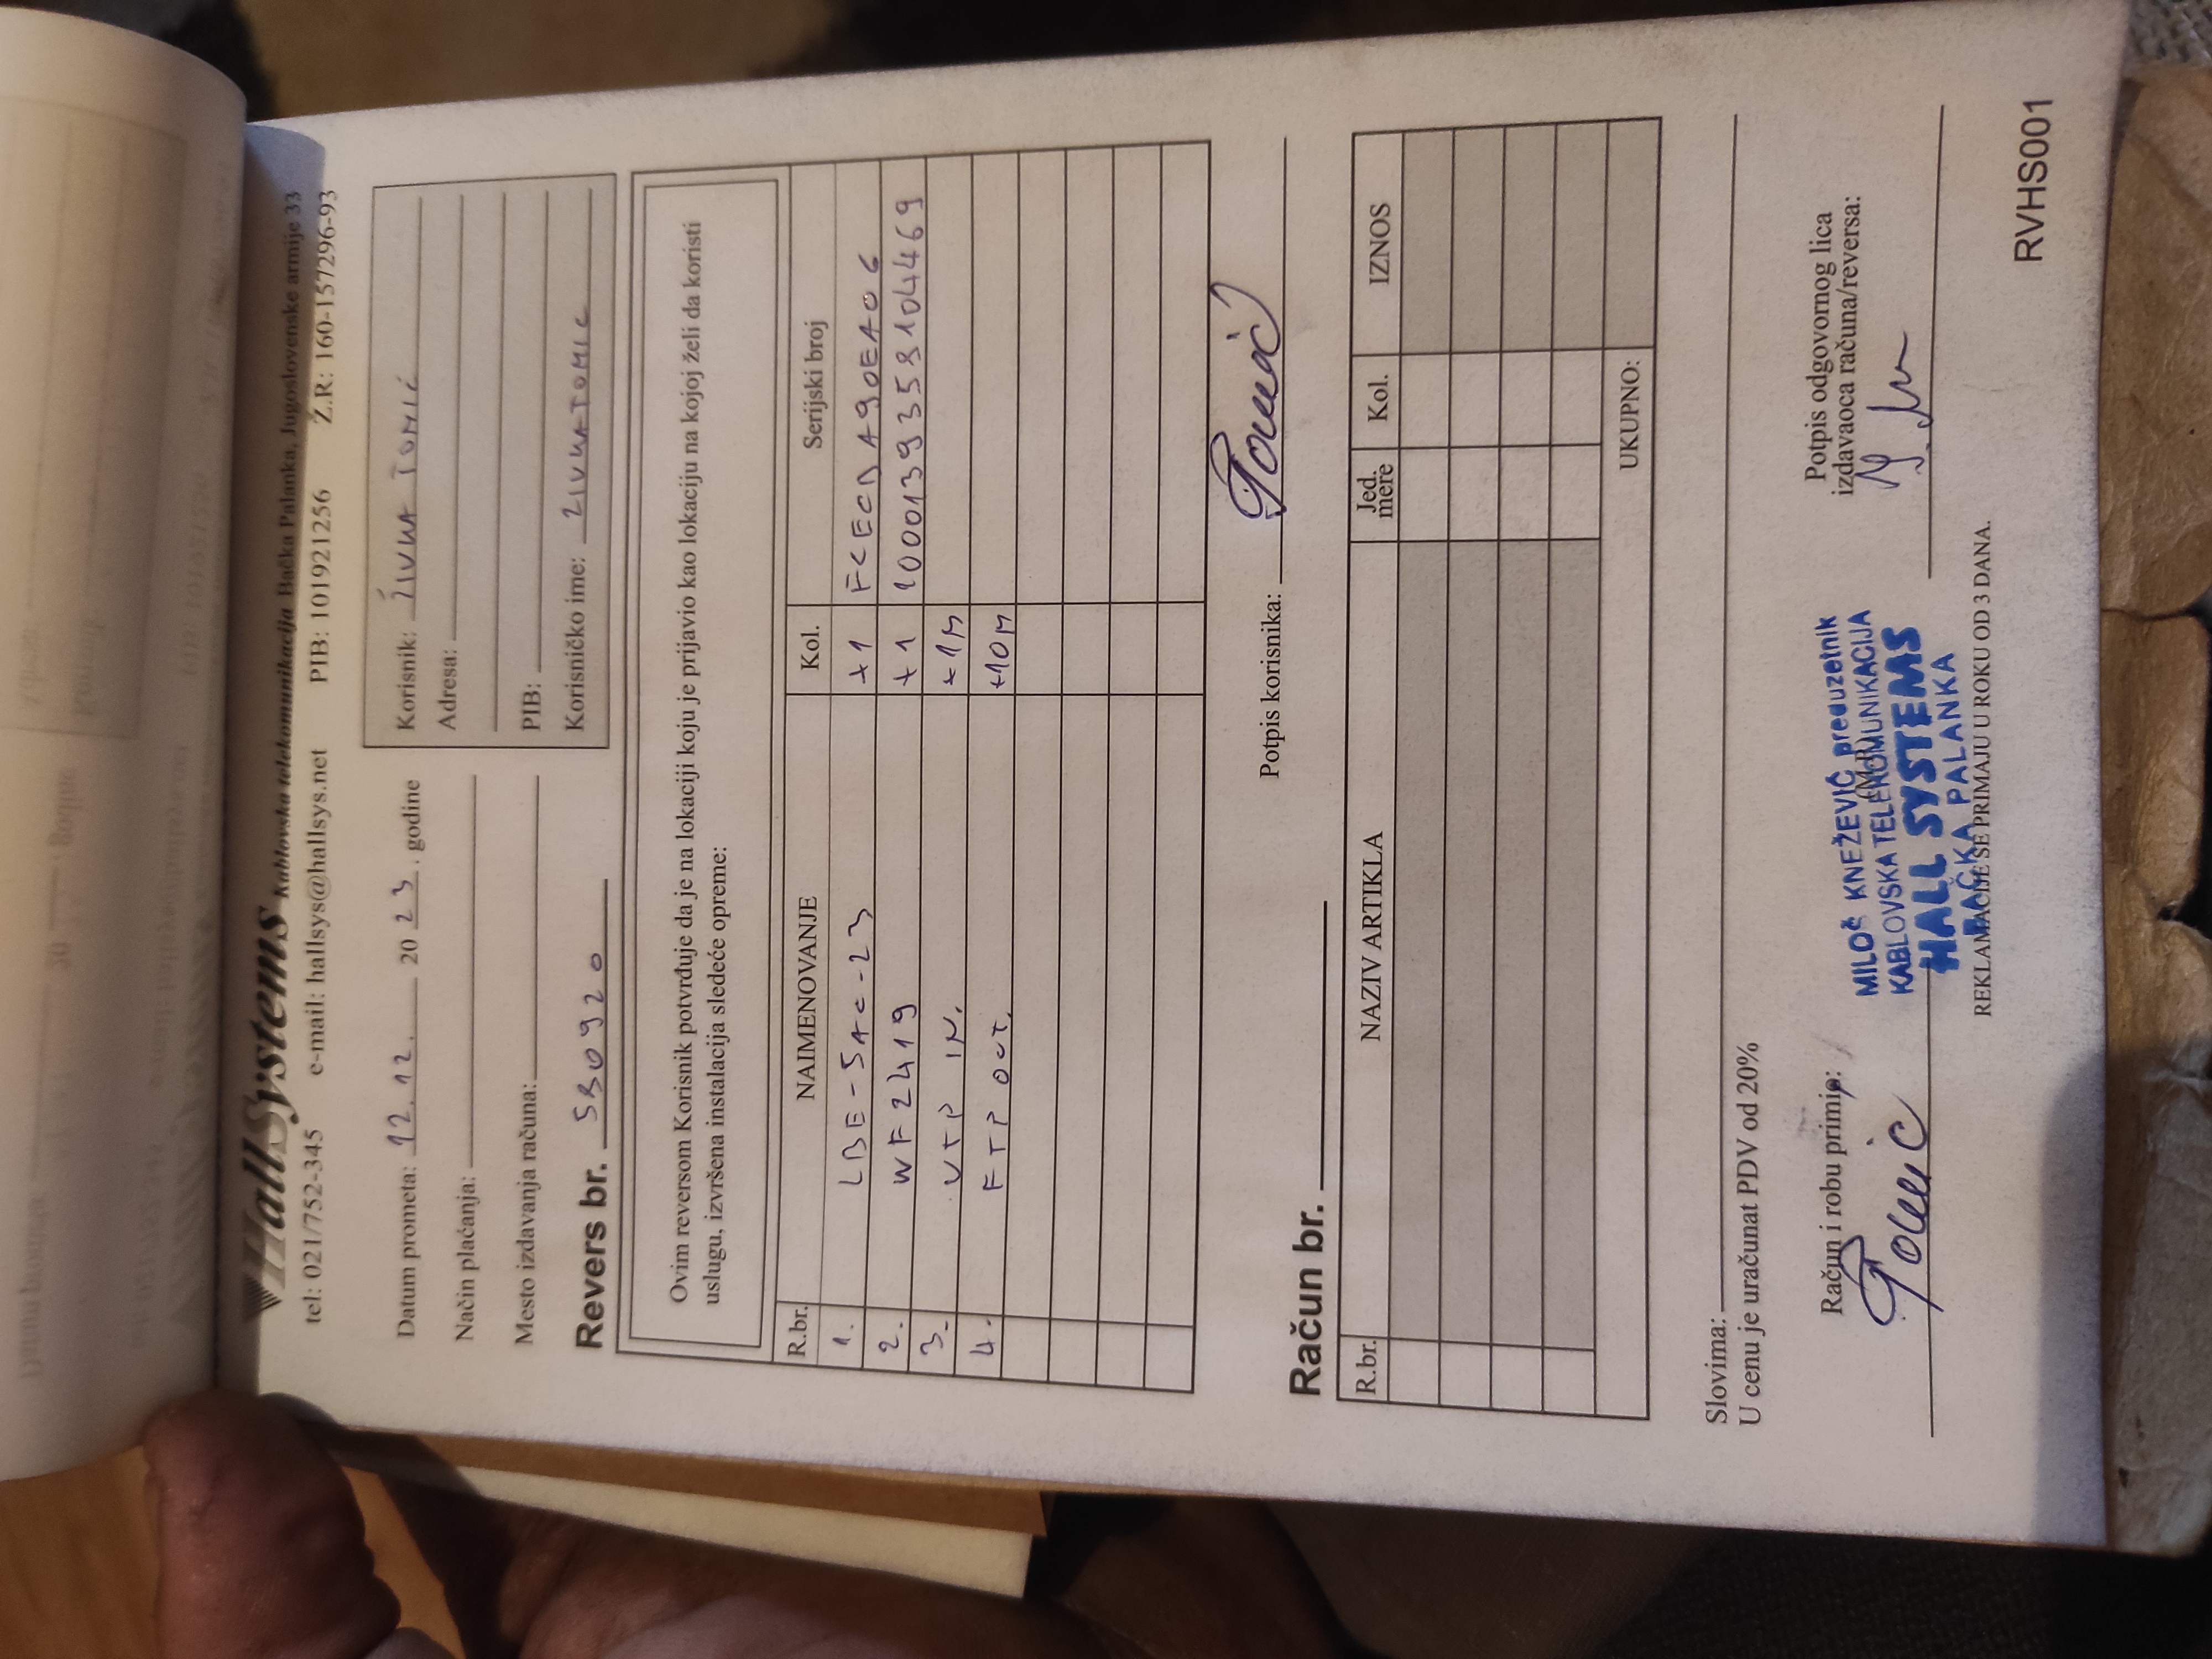 HallSystems Kablovska telekomunikacija Bačka Palanka, Jugoslovenske armije 33
tel: 021/752-345 e-mail: hallsys@hallsys.net PIB: 101921256 Ž.R: 160-157296-93
Datum prometa: 12.12. 2023. godine
Način plaćanja:
Mesto izdavanja računa:
Revers br. SB0920
Korisnik: ŽIVKA TOMIĆ
Adresa:
PIB:
Korisničko ime: ZIVKATOMIC
Ovim reversom Korisnik potvrđuje da je na lokaciji koju je prijavio kao lokaciju na kojoj želi da koristi
uslugu, izvršena instalacija sledeće opreme:
R.br. NAIMENOVANJE Kol. Serijski broj
1. LBE-5AC-23 +1 FCECDA90EA06
2. WF2419 +1 1000139358104469
3. UTP IN. +1M
4. FTP OUT. +10M
Potpis korisnika: Tomić
Račun br.
R.br. NAZIV ARTIKLA Jed. mere Kol. IZNOS
UKUPNO:
Slovima:
U cenu je uračunat PDV od 20%
Račun i robu primio:
Tomić
(M.P.)
MILOŠ KNEŽEVIĆ preduzetnik
KABLOVSKA TELEKOMUNIKACIJA
HALL SYSTEMS
BAČKA PALANKA
Potpis odgovornog lica
izdavaoca računa/reversa:
REKLAMACIJE SE PRIMAJU U ROKU OD 3 DANA.
RVHS001